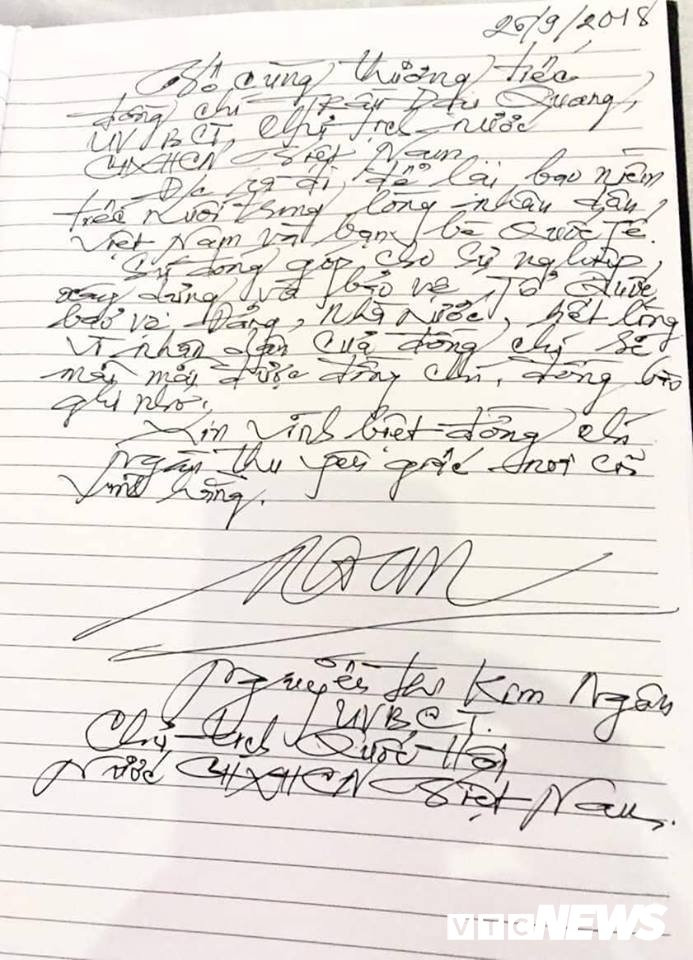 26/9/2018
Vô cùng thương tiếc
đồng chí Trần Đại Quang,
UVBCT, Chủ tịch nước
CHXHCN Việt Nam
Đ/c ra đi, để lại bao niềm
tiếc nuối trong lòng nhân dân
Việt Nam và bạn bè Quốc Tế.
Sự đóng góp cho sự nghiệp,
xây dựng và bảo vệ Tổ Quốc
bảo vệ Đảng, Nhà nước, hết lòng
vì nhân dân của đồng chí sẽ
mãi mãi được đồng chí, đồng bào
ghi nhớ.
Xin vĩnh biệt đồng chí
ngàn thu yên giấc nơi cõi
vĩnh hằng.
Ngân
Nguyễn Thị Kim Ngân
UVBCT.
Chủ tịch Quốc Hội
Nước CHXHCN Việt Nam.
VTC NEWS